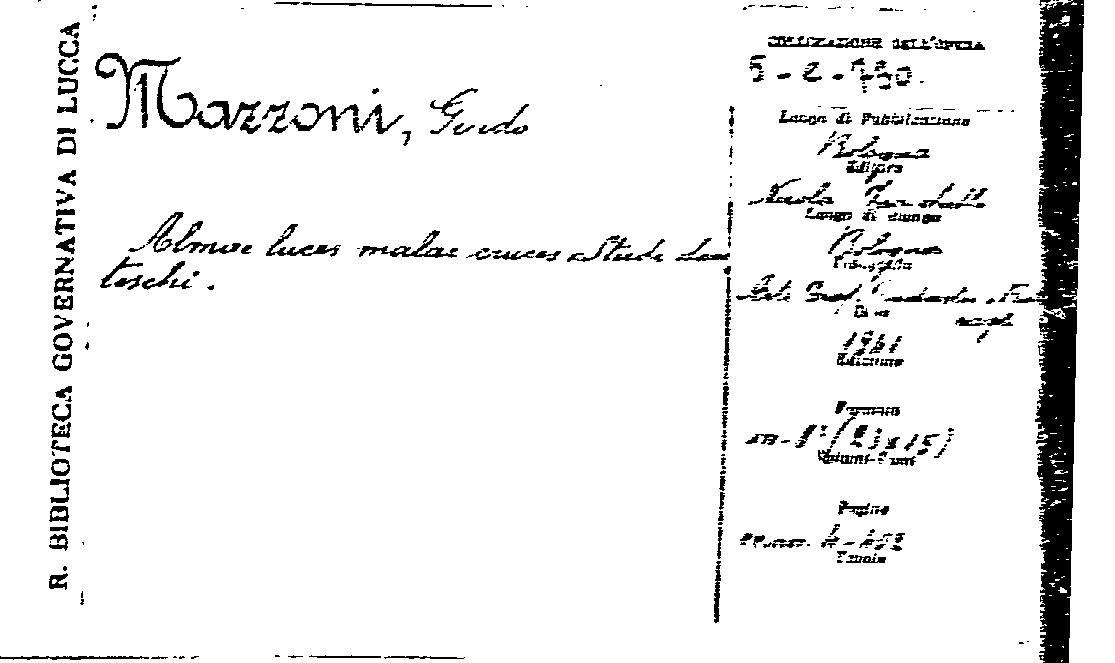 R. BIBLIOTECA GOVERNATIVA DI LUCCA
Mazzoni, Guido
Almae luces malae cruces Studi dan
teschi.
COLLOCAZIONE DELL'OPERA
Luogo di Pubblicazione
Bologna
Editore
Nicola Zanichelli
Luogo di stampa
Bologna
Tipografia
1941
Edizione
Formato
in-8°
Volumi-Tomi
Pagine
Tavole